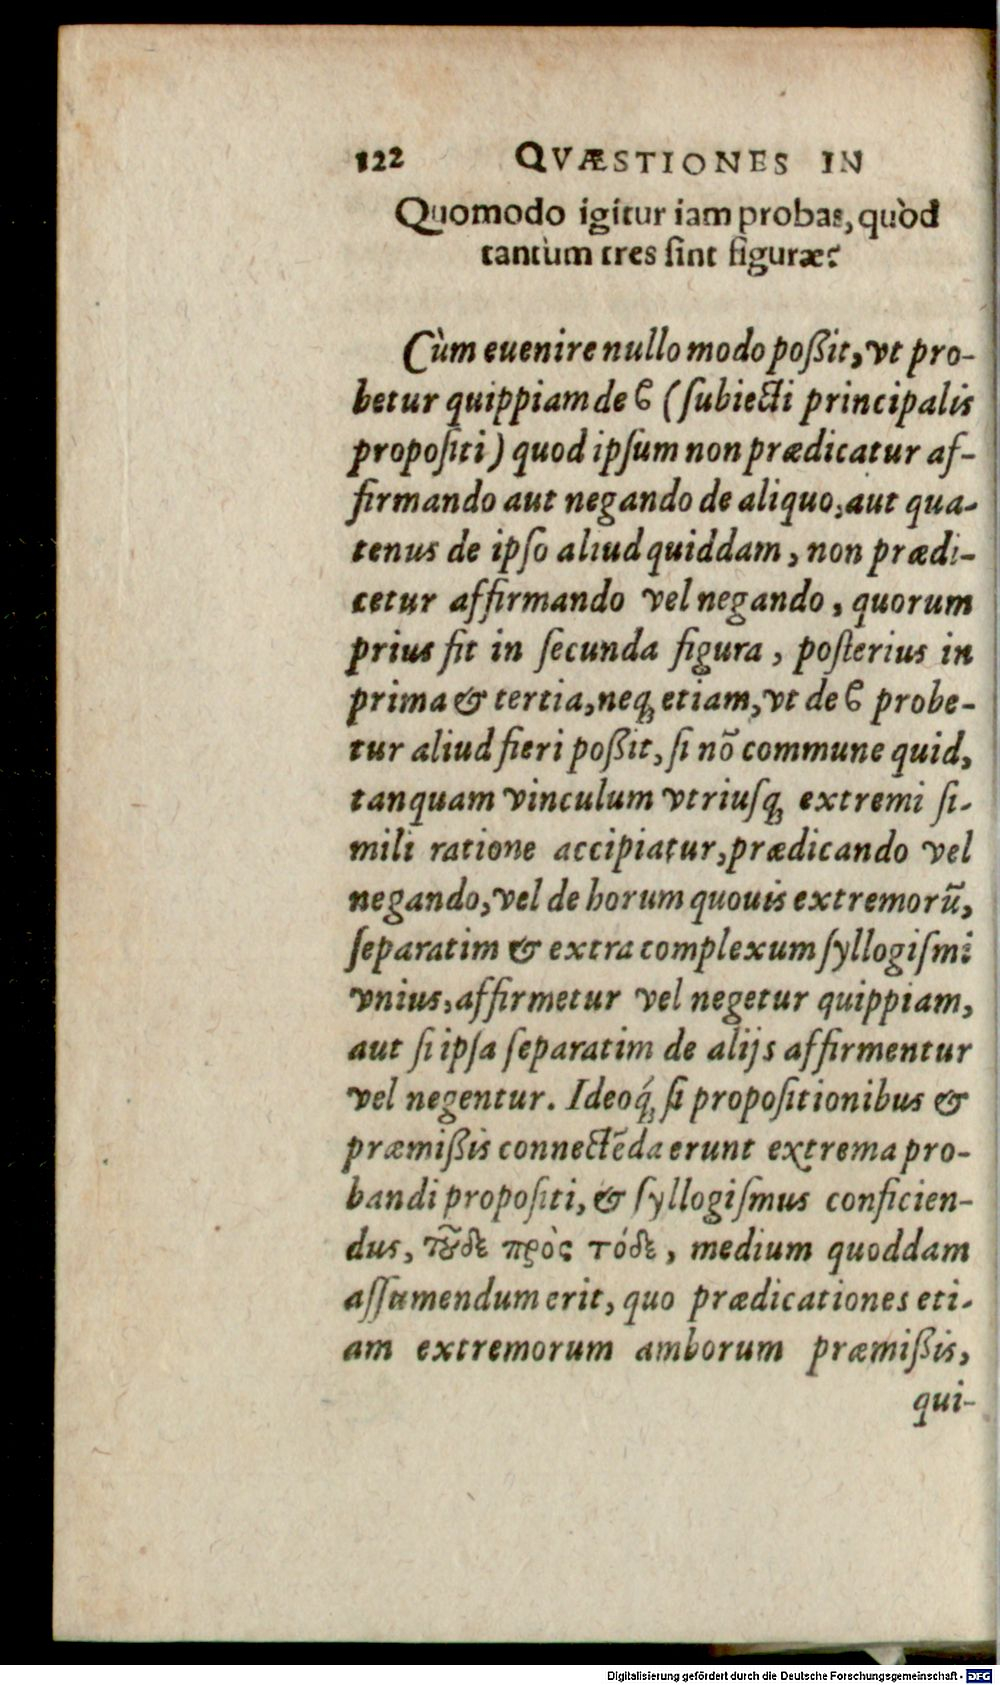 122 QVÆSTIONES IN
Quomodo igitur iam probas, quòd
tantùm tres ſint figuræ?
Cùm euenire nullo modo poßit, vt pro-
betur quippiam de ϐ (ſubiecti principalis
propoſiti) quod ipſum non prædicatur af-
firmando aut negando de aliquo, aut qua-
tenus de ipſo aliud quiddam, non prædi-
cetur affirmando vel negando, quorum
prius fit in ſecunda figura, poſterius in
prima & tertia, neq; etiam, vt de ϐ probe-
tur aliud fieri poßit, ſi nõ commune quid,
tanquam vinculum vtriuſq; extremi ſi-
mili ratione accipiatur, prædicando vel
negando, vel de horum quouis extremorũ,
ſeparatim & extra complexum ſyllogiſmi
vnius, affirmetur vel negetur quippiam,
aut ſi ipſa ſeparatim de alijs affirmentur
vel negentur. Ideoq́; ſi propoſitionibus &
præmißis connectẽda erunt extrema pro-
bandi propoſiti, & ſyllogiſmus conficien-
dus, τȣ͂δε πρὸς τόδε, medium quoddam
aſſumendum erit, quo prædicationes eti-
am extremorum amborum præmißis,
qui-
Digitalisierung gefördert durch die Deutsche Forschungsgemeinschaft - DFG